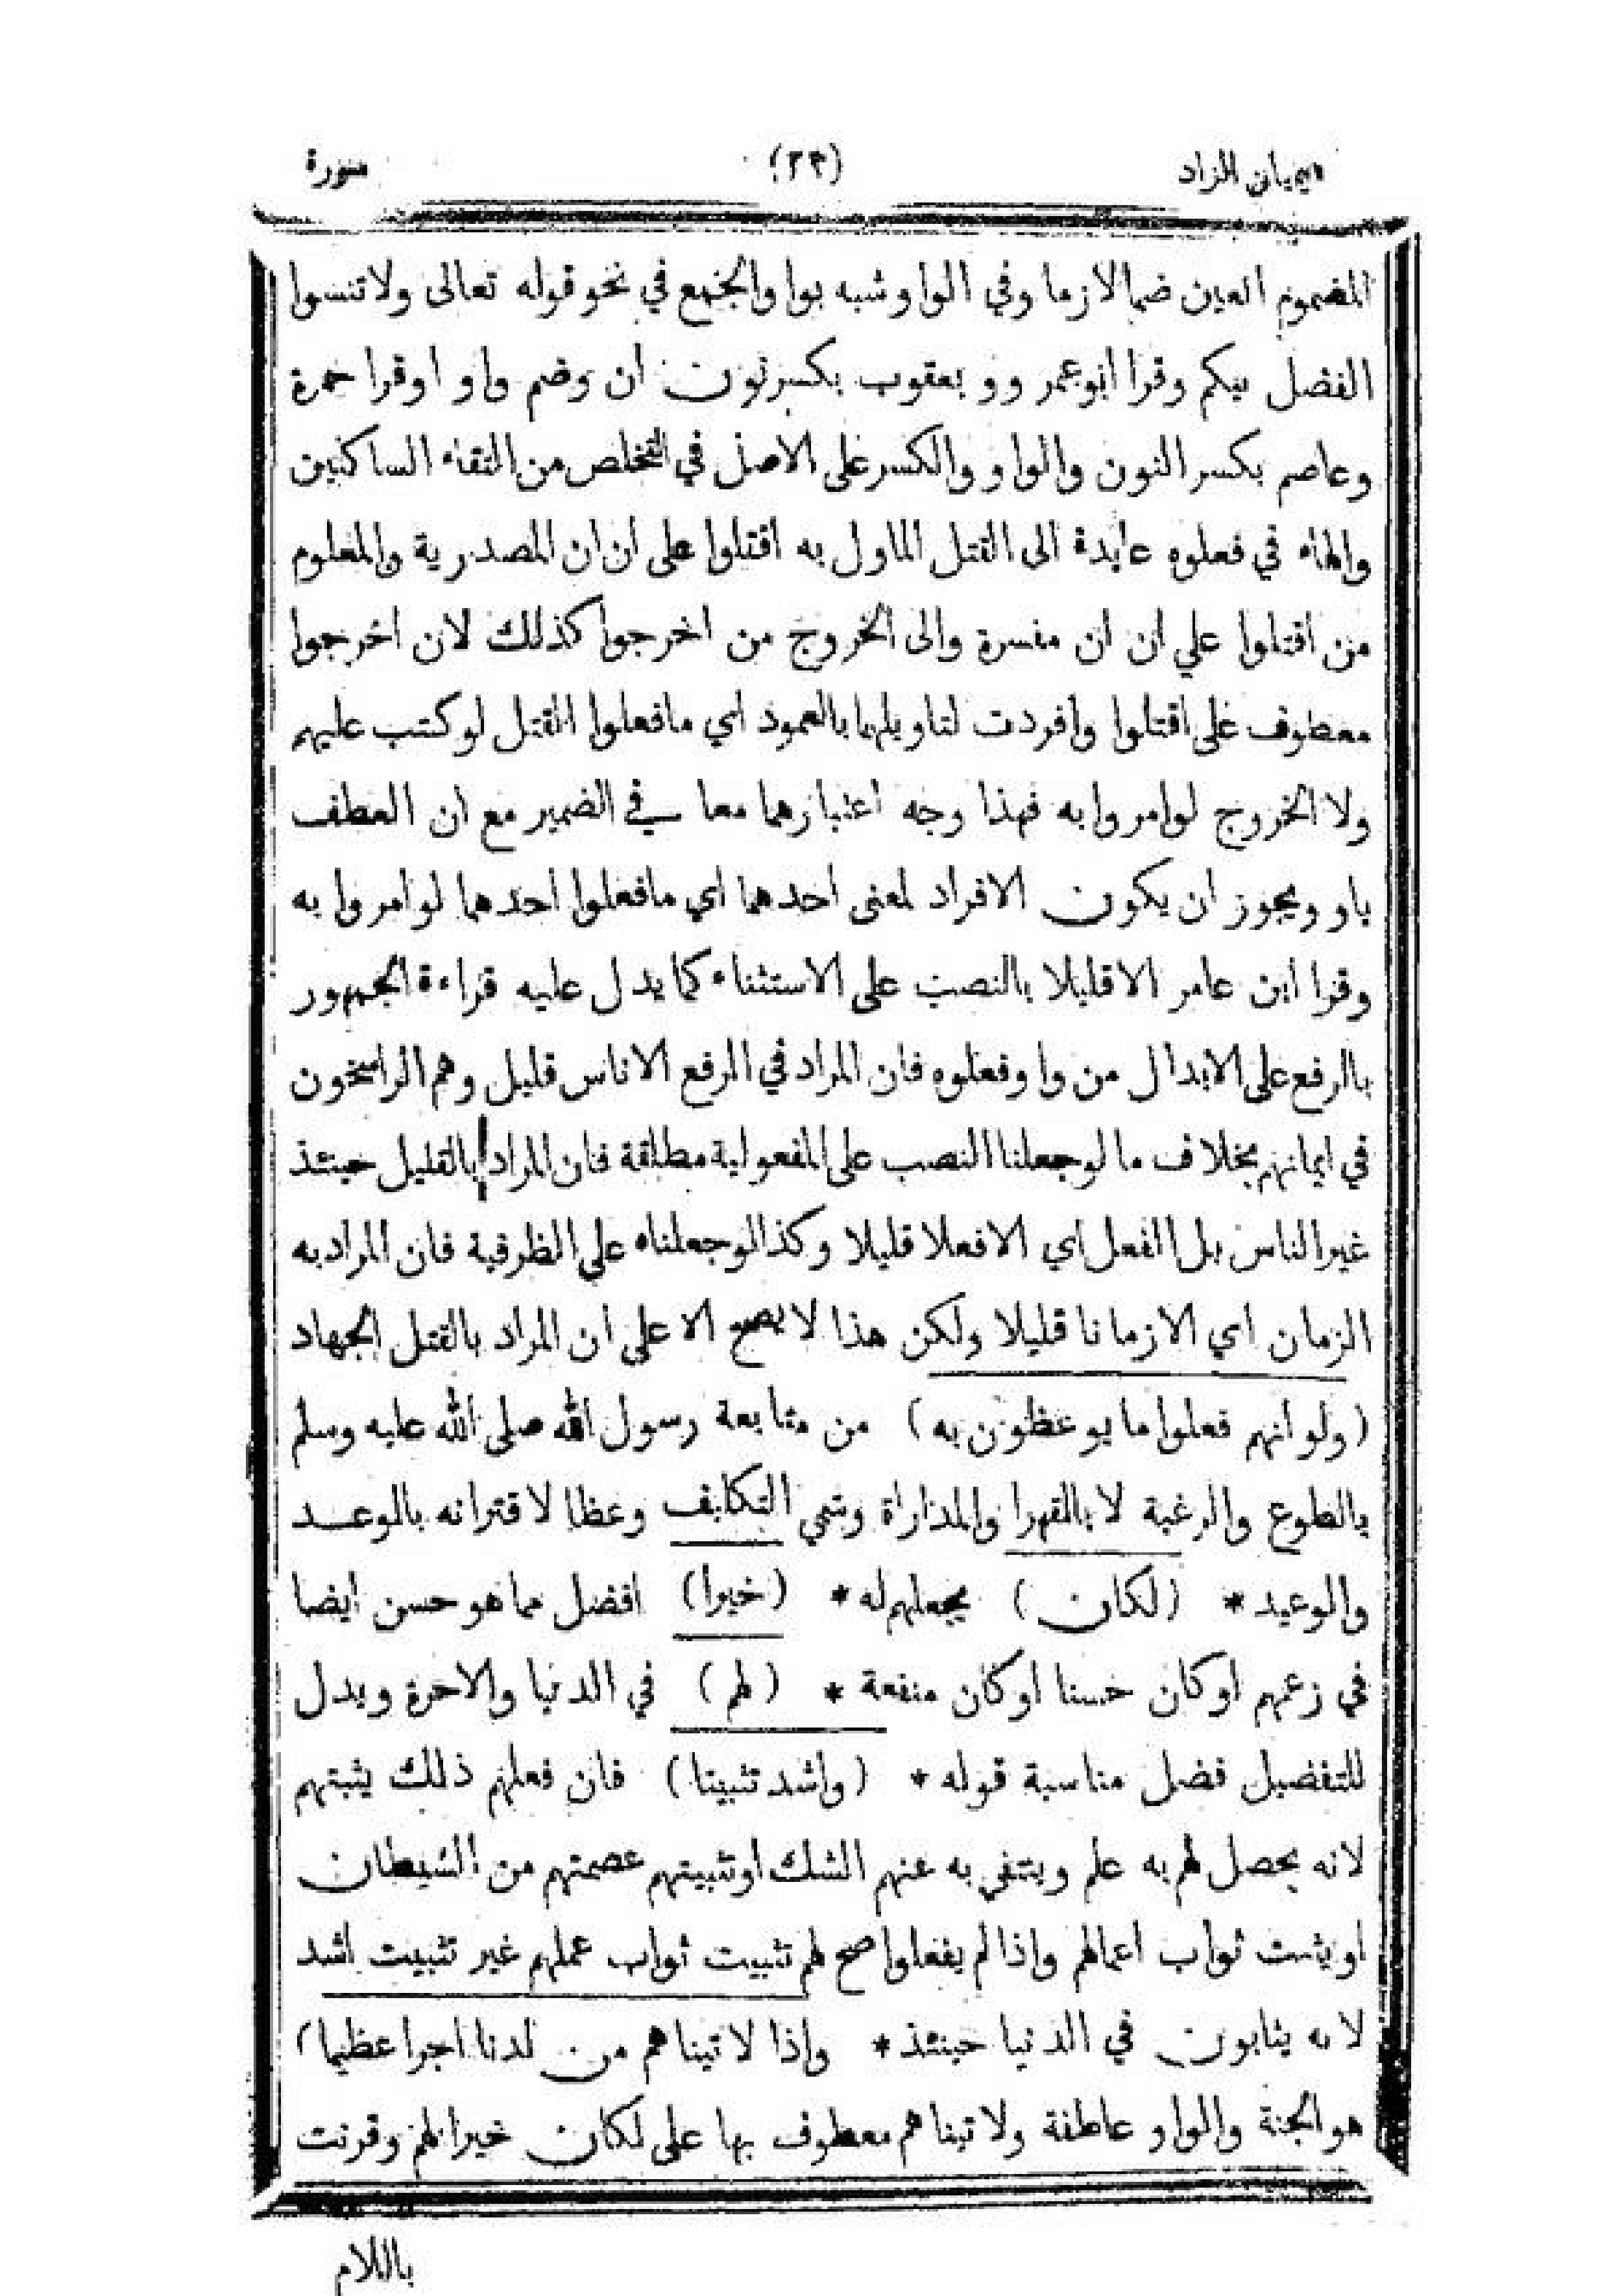 هميان الزاد (٢٤) سورة
المضموم العين ضما لازما وفي الواو شبه بواو الجمع في نحو قوله تعالى ولا تنسوا
الفضل بينكم وقرا ابو عمرو ويعقوب بكسر نون ان وضم واو او قرا حمزة
وعاصم بكسر النون والواو والكسر على الاصل في التخلص من التقاء الساكنين
والهاء في فعلوه عايدة الى القتل الماول به اقتلوا على ان ان المصدرية والمعلوم
من اقتلوا علي ان ان مفسرة والى الخروج من اخرجوا كذلك لان اخرجوا
معطوف على اقتلوا وافردت لتاويلهما بالعمود اي ما فعلوا القتل لو كتب عليهم
ولا الخروج لو امروا به فهذا وجه اعتبارهما معا في الضمير مع ان العطف
باو ويجوز ان يكون الافراد لمعنى احدهما اي ما فعلوا احدهما لو امروا به
وقرا ابن عامر الا قليلا بالنصب على الاستثناء كما يدل عليه قراءة الجمهور
بالرفع على الابدال من واو فعلوه فان المراد في الرفع الا ناس قليل وهم الراسخون
في ايمانهم بخلاف ما لو جعلنا النصب على المفعولية مطلقة فان المراد بالقليل حينئذ
غير الناس بل الفعل اي الا فعلا قليلا وكذا لو جعلناه على الظرفية فان المراد به
الزمان اي الا زمانا قليلا ولكن هذا لا يصح الا على ان المراد بالقتل الجهاد
(ولو انهم فعلوا ما يوعظون به) من متابعة رسول الله صلى الله عليه وسلم
بالطوع والرغبة لا بالقهر او المداراة وسمي التكليف وعظا لاقترانه بالوعد
والوعيد * (لكان) يجعلهم له * (خيرا) افضل مما هو حسن ايضا
في زعمهم او كان حسنا او كان منفعة * (لهم) في الدنيا والاخرة ويدل
للتفضيل فضل مناسبة قوله * (واشد تثبيتا) فان فعلهم ذلك يثبتهم
لانه يحصل لهم به علم وينتفى به عنهم الشك او تثبيتهم عصمتهم من الشيطان
او يثبت ثواب اعمالهم واذا لم يفعلوا صح لهم تثبيت ثواب عملهم غير تثبيت اشد
لانه يثابون في الدنيا حينئذ * واذا لاتيناهم من لدنا اجرا عظيما)
هو الجنة والواو عاطفة ولاتيناهم معطوف بها على لكان خيرا لهم وقرنت
باللام